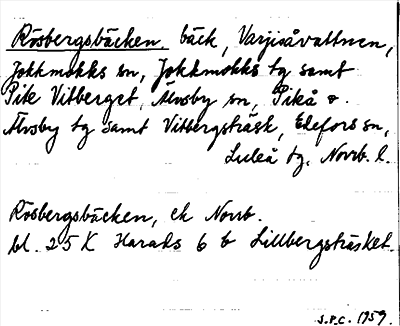 Rösbergsbäcken, bäck, Varjisåvattnen,
Jokkmokks sn, Jokkmokks tg samt
Pite Vitberget, Älvsby sn, Piteå o.
Älvsby tg samt Vitbergsträsk, Edefors sn,
Luleå tg, Norrb. l.
Rösbergsbäcken, ek Norrb.
bl. 25 K Harads 6 b Lillbergsträsket.
S.P.C. 1959.